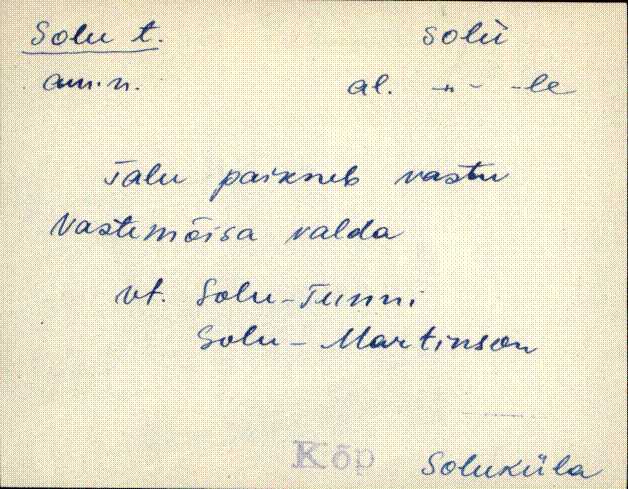 Solu t. solù
am.n. al. -"- -le
Talu paikneb vastu
Vastemõisa valda
vt. Solu-Tunni
Solu-Martinson
Kõp Soluküla